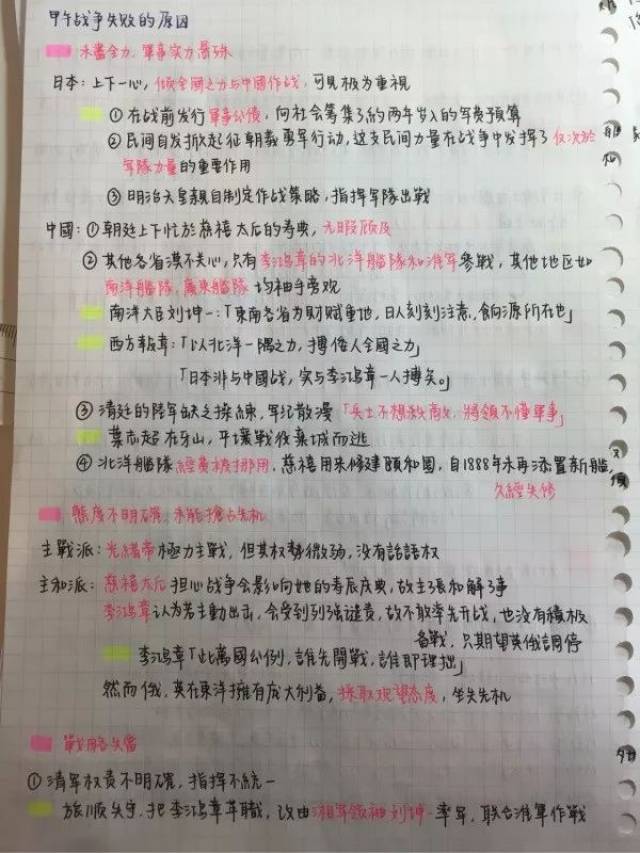 甲午战争失败的原因
未盡全力，軍事实力懸殊
日本：上下一心，傾全國之力与中國作战，可見极为重視
① 在战前发行軍事公債，向社会筹集了約两年岁入的军费预算
② 民间自发掀起征朝義勇军行动，这支民间力量在战争中发挥了仅次於
军隊力量的重要作用
③ 明治天皇親自制定作战策略，指挥军隊出戰
中國：① 朝廷上下忙於慈禧太后的寿典，无暇顾及
② 其他各省漠不关心，只有李鴻章的北洋艦隊和淮军參戰，其他地区如
南洋艦隊，廣東艦隊 均袖手旁观
南洋大臣刘坤一：「東南各省为财赋重地，日人刻刻注意，餉源所在也」
西方報章：「以北洋一隅之力，搏倭人全國之力」
「日本非与中國战，实与李鴻章一人搏矣。」
③ 清廷的陸军缺乏操練，军纪散漫「兵士不想殺敵，將領不懂軍事」
葉志超在牙山，平壤戰役棄城而逃
④ 北洋艦隊經費被挪用，慈禧用来修建頤和園，自1888年未再添置新艦，
久經失修
態度不明確，未能搶占先机
主戰派：光緒帝極力主戰，但其权勢微弱，没有話語权
主和派：慈禧太后担心战争会影响她的寿辰庆典，故主張和解了事
李鴻章认为若主動出击，会受到列強谴责，故不敢率先开战，也没有積极
备戰，只期望英俄調停
李鴻章「此萬國公例，誰先開戰，誰即理拙」
然而俄，英在東洋擁有庞大利益，採取观望态度，坐失先机
戰略失當
① 清军权责不明確，指揮不統一
旅順失守，把李鴻章革職，改由湘軍領袖刘坤一率军，联合淮軍作戰